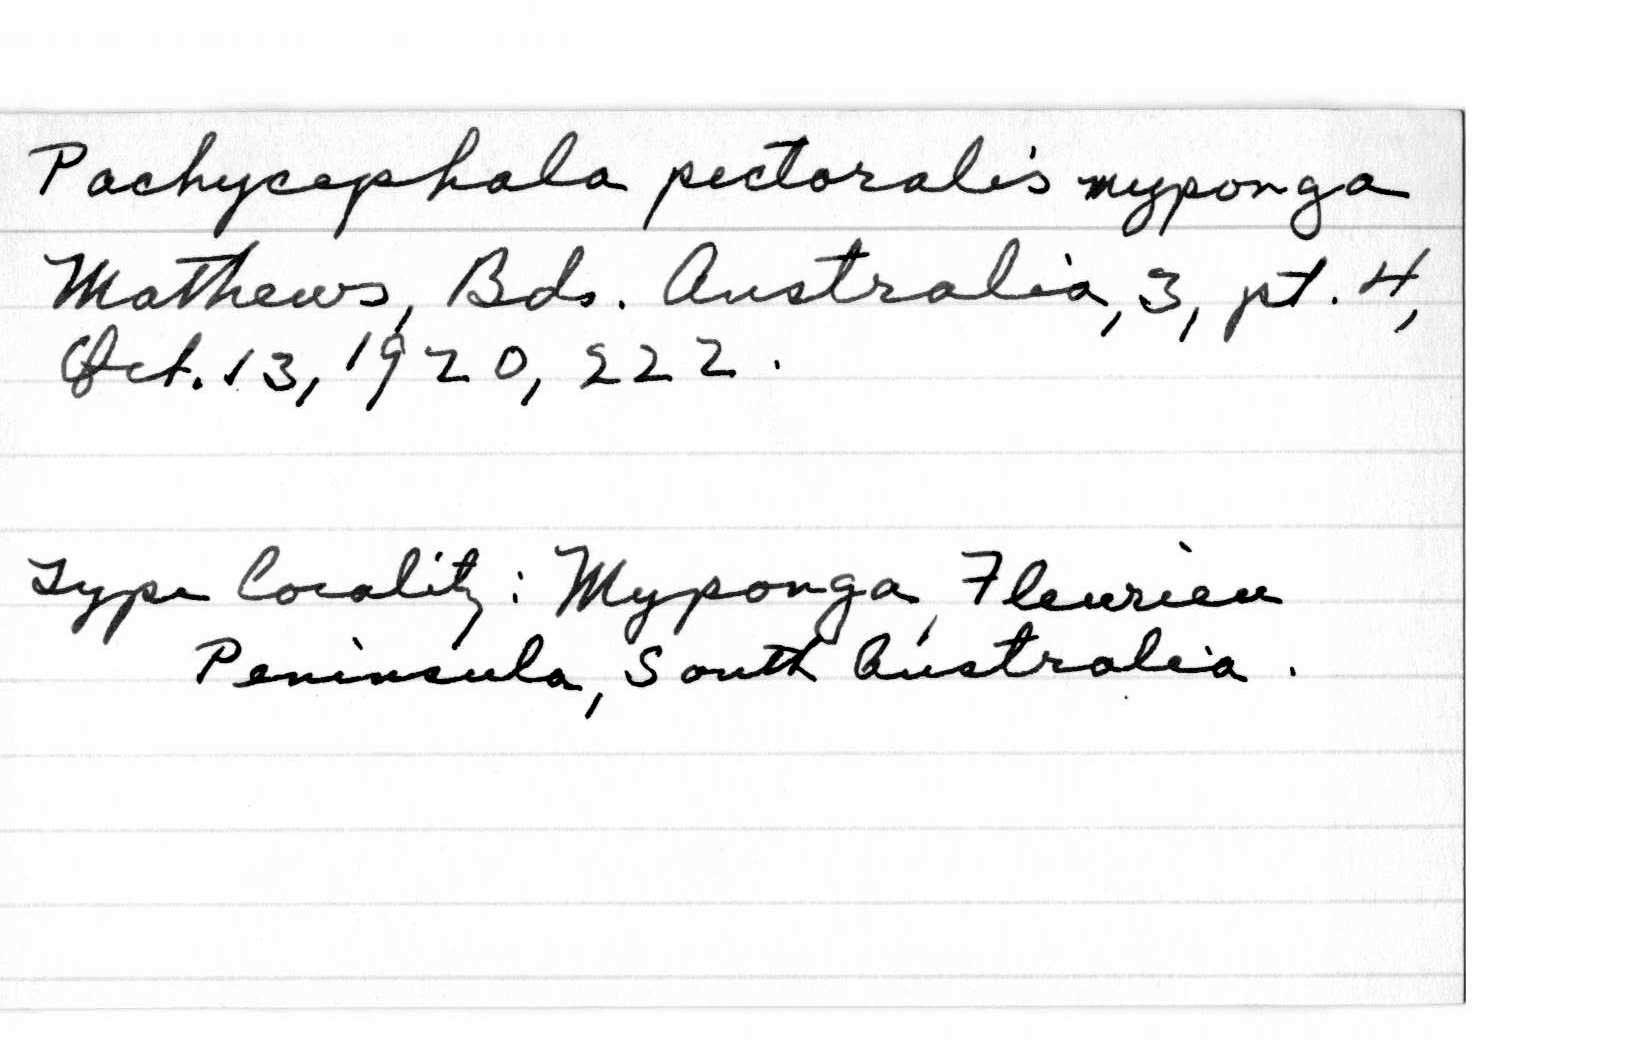 Pachycephala pectoralis myponga
Mathews, Bds. Australia, 3, pt. 4,
Oct. 13, 1920, 222.
Type Locality: Myponga, Fleurieu
Peninsula, South Australia.